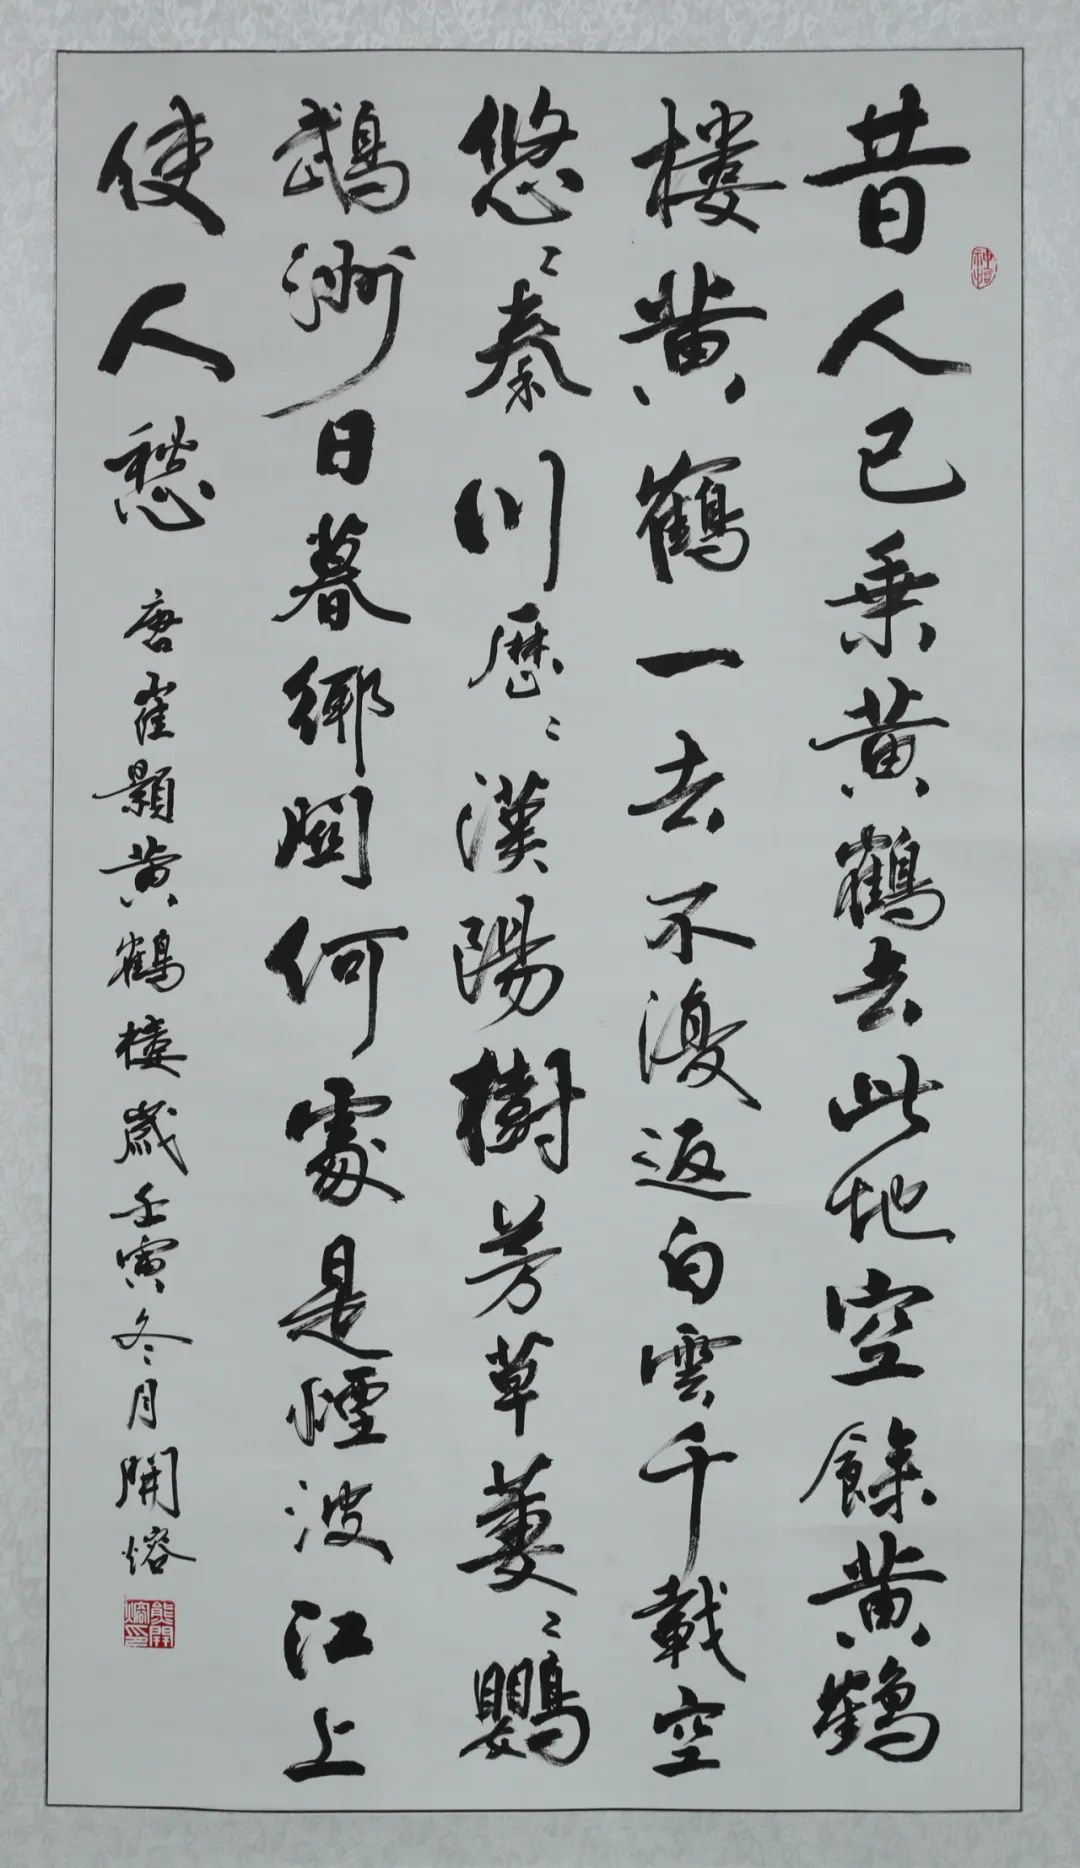 昔人已乘黄鶴去此地空餘黄鶴
樓黄鶴一去不復返白雲千載空
悠〻秦川歷〻漢陽樹芳草萋〻鸚
鵡洲日暮鄉關何處是煙波江上
使人愁 唐崔顥黄鶴樓歲壬寅冬月開熔
熊開熔印